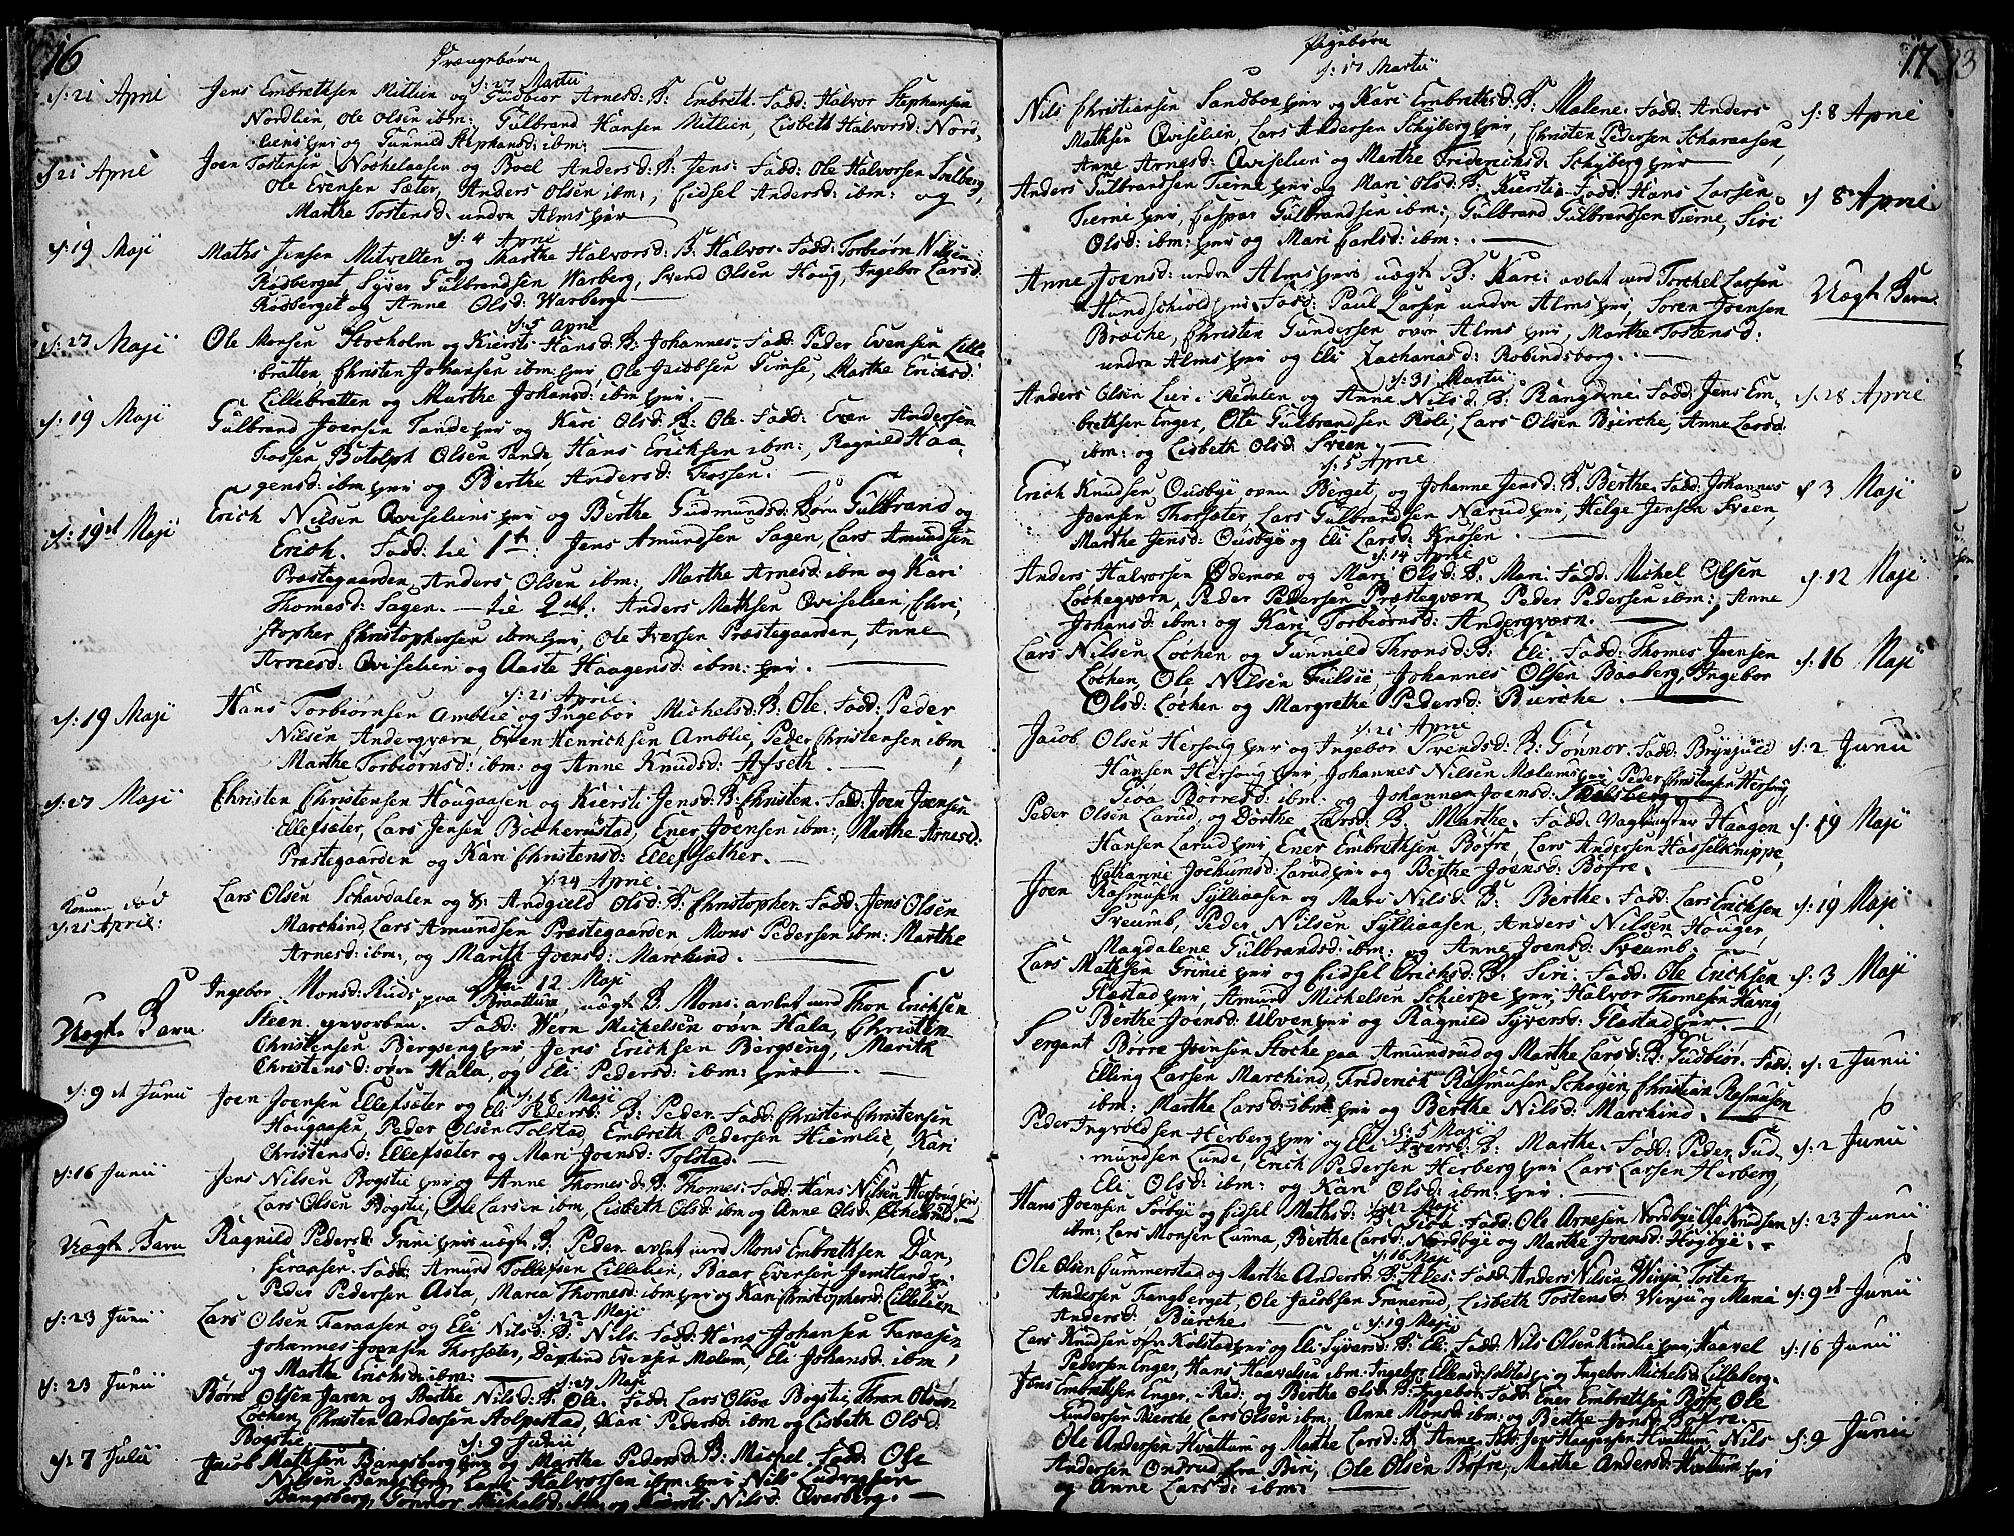 16
Drængebørn
d: 27 Martii
d: 21 April Jens Embrethsen Mitlien og Gudbior Arnesd: B: Embreth. Fadd: Halvor Stephansen
Nordlien, Ole Olsen ibm:, Gulbrand Hansen Mitlien, Lisbeth Halvorsd: Nord-
liens og Gunnild Stephansd: ibm:
d 21 April Joen Tostensen Nochelaasen og Boel Andersd: B: Jens. Fadd: Ole Halvorsen
Ole Evensen Sæter, Anders Olsen ibm:, Eidsel Andersd: ibm: og
Marthe Tostensd: undre Alms
d: 4 April
d: 19 Maji Maths Jensen Mitvelten og Marthe Halvorsd: B: Halvor. Fadd: Torbiørn Nilsen
Rødberget, Syver Gulbrandsen Warberg, Svend Olsen Houg, Ingebor Larsd:
Rødberget og Anne Olsd: Warberg
d: 5 April
d: 27 Maji Ole Monsen Stocholm og Kiersti Hansd: B: Johannes. Fadd: Peder Evensen Lille
bratten, Christen Johansen ibm, Ole Jacobsen Gimse, Marthe Ericksd:
Lillebratten og Marthe Johansd: ibm
d: 19 Maji Gulbrand Joensen Tande og Kari Olsd: B: Ole. Fadd: Even Andersen
Fossen, Botolph Olsen Tande, Hans Ericksen ibm:, Ragnild Haa
gensd: ibm og Berthe Andersd: Fossen.
d: 19 d Maji Erich Nilsen Qviselien og Berthe Gudmundsd: Børn Gulbrand og
Erich. Fadd: til 1te: Jens Amundsen Sagen, Lars Amundsen
Præstegaarden, Anders Olsen ibm:, Marthe Arnesd: ibm og Kari
Thomesd: Sagen. — til 2det: Anders Mathsen Qviselien, Chri-
stopher Christophersen ibm, Ole Iversen Præstegaarden, Anne
Arnesd: Qviselien og Aaste Haagensd: ibm:
d: 21 April
d: 19 Maji Hans Torbiørnsen Amblie og Ingebor Michelsd: B: Ole. Fadd: Peder
Nilsen Andergværn, Even Henrichsen Amblie, Peder Christensen ibm
Marthe Torbiørnsd: ibm: og Anne Knudsd: Afseth.
d: 27 Maji Christen Christensen Hougaasen og Kiersti Jensd: B: Christen. Fadd: Joen Joensen
Ellefsæter, Lars Jensen Bocherustad, Ener Joensen ibm:, Marthe Arnesd:
Præstegaarden og Kari Christensd: Ellefsæther.
d: 24 April
d: 21 April: Lars Olsen Schavdalen og Andgield Olsd: B: Christopher. Fadd: Jens Olsen
Marchind, Lars Amundsen Præstegaarden, Mons Pedersen ibm: Marthe
Arnesd: ibm:, og Marith Joensd: Marchind.
12 Maji
Uægte Barn Ingebor Monsd: Ruds paa Braattua, uægte B: Mons, avlet med Thor Ericksen
Steen. Fadd: Wern Michelsen øvre Hala, Christen
Christensen Bergseng, Jens Ericksen Bergseng, Marith
Christensd: øvre Hala, og Eli Pedersd: ibm:
d: 16 Maji
d: 9 d Junii Joen Joensen Ellefsæter og Eli Pedersd: B: Peder. Fadd: Christen Christensen
Hougaasen, Peder Olsen Tolstad, Embreth Pedersen Hiemlie, Kari
Christensd: Ellefsæter og Mari Joensd: Tolstad.
d: 16 Junii Jens Nilsen Bogstie og Anne Thomesd: B: Thomes. Fadd: Hans Nilsen
Lars Olsen Bogstie, Ole Larsen ibm, Lisbeth Olsd: ibm og Anne Olsd:
Uægte Barn Ragnild Pedersd: Grini uægte B: Peder avlet med Mons Embrethsen Dan-
seraasen. Fadd: Amund Tollefsen Lillelien, Baar Evensen Jemtland
Peder Pedersen Asta, Maria Thomesd: ibm og Kari Christophersd: Lillelien
d: 22 Maji
d: 23 Junii Lars Olsen Faraasen og Eli Nilsd: B: Nils. Fadd: Hans Johansen Faraasen
Johannes Joensen Thorsæter, Daphind Evensen Mælum, Eli Johansd: ibm
og Marthe Erichsd: ibm:
d: 27 Maji
d: 23 Junii Børre Olsen Jaren og Berthe Nilsd: B: Ole. Fadd: Lars Olsen Bogstie, Thron Olsen
Løchen, Christen Andersen Holpestad, Kari Pedersd: ibm og Lisbeth Olsd:
Bogstie
d: 9 Junii
d: 7 Julii Jacob Mathsen Bangsberg og Marthe Pedersd: B: Michel. Fadd: Ole
Nilsen Bangsberg, Lars Halvorsen ibm, Nils Ludvigsen
Bangsberg, Gønnor Michelsd: ibm og Kiersti Nilsd: Qvarberg.
17
Pigebørn
d: 17 Martii
Nils Christiansen Sandboe og Kari Embrethsd: B: Malene. Fadd: Anders d: 8 April
Mathsen Qviselien, Lars Andersen Schyberg, Christen Pedersen Scharaasen,
Anne Arnesd: Qviselien og Marthe Friderichsd: Schyberg
Anders Gulbrandsen Tierne og Mari Olsd: B: Kiersti. Fadd: Hans Larsen d 8 April
Tierne, Caspar Gulbrandsen ibm:, Gulbrand Gulbrandsen Tierne, Siri
Olsd: ibm: og Mari Carlsd: ibm:.
Anne Joensd: undre Alms uægte B: Kari: avlet med Torchel Larsen Uægte Barn
Hundschiold, Fadd: Paul Larsen undre Alms, Søren Joensen
Broche, Christen Gundersen øvre Alms, Marthe Tostensd:
undre Alms og Eli Zachariasd: Robindsborg.
d: 31 Martii
Anders Olsen Lier i Redalen og Anne Nilsd: B: Rangdine. Fadd: Jens Em- d: 28 April
brethsen Enger, Ole Gulbrandsen Roli, Lars Olsen Bierche, Anne Larsd:
ibm: og Lisbeth Olsd: Sveen.
d: 5 April
Erich Knudsen Ousbye oven Berget, og Johanne Jensd: B: Berthe. Fadd: Johannes d 3 Maji
Joensen Thorsæter, Lars Gulbrandsen Narud, Helge Jensen Sveen,
Marthe Jensd: Ousbye og Eli Larsd: Knssen.
d: 14 April
Anders Halvorsen Ødemoe og Mari Olsd: B: Mari. Fadd: Michel Olsen d: 12 Maji
Løchegværn, Peder Pedersen Præstegværn, Peder Pedersen ibm:, Anne
Johansd: ibm: og Kari Torbiørnsd: Andergværn.
Lars Nilsen Løchen og Gunnild Thronsd: B: Eli. Fadd: Thomes Joensen d: 16 Maji
Løchen, Ole Nilsen Fulsie, Johannes Olsen Baaberg, Ingebor
Olsd: Løchen og Margrethe Pedersd: Bierche.
d: 21 April
Jacob Olsen Hersoug og Ingebor Svendsd: B: Gønnor. Fadd: Brynjuld d: 2 Junii
Hansen Hersoug, Johannes Nilsen Mælum, Peder Christensen Hersoug,
Gioa Børresd: ibm: og Johanne Joensd:
Peder Olsen Larud, og Dorthe Larsd: B: Marthe. Fadd: Haagen d: 19 Maji
Hansen Larud, Ener Embrethsen Bøfre, Lars Andersen Hasselknippe,
Catharine Jochumsd: Larud og Berthe Joensd: Bøfre.
Joen Rasmusen Sylliaasen og Mari Nilsd: B: Berthe. Fadd: Lars Erichsen d: 19 Maji
Sveumb, Peder Nilsen Sylliaasen, Anders Nilsen Houger,
Magdalene Gulbrandsd: ibm: og Anne Joensd: Sveumb.
Lars Mathsen Grinie og Eidsel Erichsd: B: Siri. Fadd: Ole Erichsen d: 3 Maji
Glæstad, Amund Michelsen Schierpe, Halvor Thomesen Havig,
Berthe Joensd: Ulven og Ragnild Syversd: Glæstad.
Sergant Børre Joensen Stoche paa Amundrud og Marthe Larsd: B: Gudbior. Fadd: d: 2 Junii
Elling Larsen Marchind, Friderich Rasmusen Schogen, Christian Rasmusen
ibm: Marthe Larsd: ibm og Berthe Nilsd: Marchind.
d: 5 Maji
Peder Ingvoldsen Herberg og Eli Iversd: B: Marthe. Fadd: Peder Gud- d: 2 Junii
mundsen Lunde, Erich Pedersen Herberg Lars Larsen Herberg,
Eli Olsd: ibm: og Kari Olsd: ibm:
d: 12 Maji
Hans Joensen Sorbye og Eidsel Mathsd: B: Gioa. Fadd: Ole Arnesen Nordbye, Ole Knudsen d: 23 Junii
ibm: Lars Monsen Lunna, Berthe Larsd: Nordbye og Marthe Joensd: Høgbye.
d: 16 Maji
Ole Olsen Cummerstad og Marthe Andersd: B: Ales. Fadd: Anders Nilsen Winju, Tosten
Andersen Fangberget, Ole Jacobsen Granerud, Lisbeth Tostensd: Winju og Maria d: 9 d Junii
Andersd: Bierche
d: 19 Maji
Lars Knudsen øfre Kolstad og Eli Syversd: B: Eli. Fadd: Nils Olsen Kindlie, Haavel d: 16 Junii
Pedersen Enger, Hans Haavelsen ibm: Ingebor Ellensd: og Ingebor Michelsd: Lilleberg.
Jens Embrethsen Enger i Rød: og Berthe Olsd: B: Ingebor. Fadd: Ener Embrethsen Bøfre, Ole
Gundersen Bierche, Lars Olsen ibm: Anne Monsd: ibm: og Berthe Bøfre.
Ole Andersen Hvattum og Marthe Larsd: B: Anne. Fadd: Jens Haagensen Hvattum, Nils d: 9 Junii
Andersen Ondrud fra Biri, Ole Olsen Bøfre, Marthe Andersd: Hvattum
og Anne Larsd: ibm: